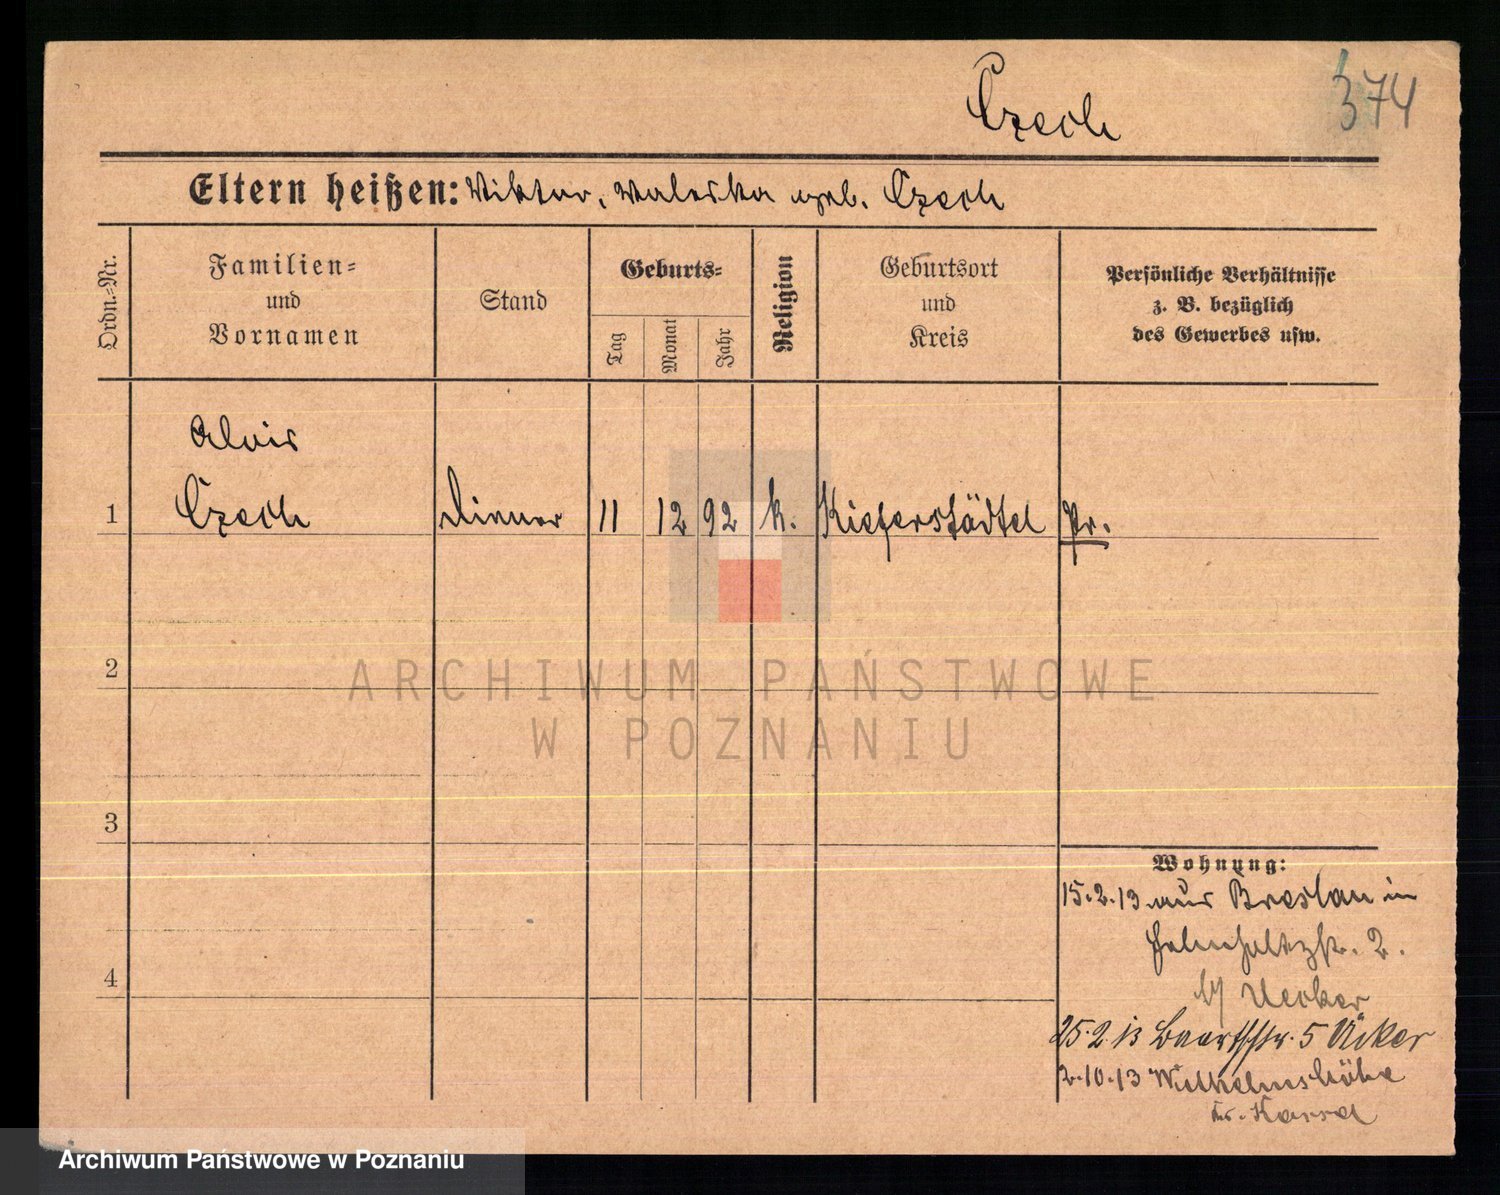 Czech
374
Eltern heißen: Viktor, Waleska geb. Czech
Ordn.-Nr.
Familien-
und
Vornamen
Stand
Geburts-
Tag
Monat
Jahr
Religion
Geburtsort
und
Kreis
Persönliche Verhältnisse
z. B. bezüglich
des Gewerbes usw.
Alois
1 Czech Diener 11 12 92 k. Kieferstädtel Pr.
2
3
4
Wohnung:
15.2.13 aus Breslau in
Helmholtzstr. 2.
b/ Uecker
25.2.13 Baarthstr. 5 Ücker
2.10.13 Wilhelmshöhe
Kr. Kassel
ARCHIWUM PAŃSTWOWE
W POZNANIU
Archiwum Państwowe w Poznaniu